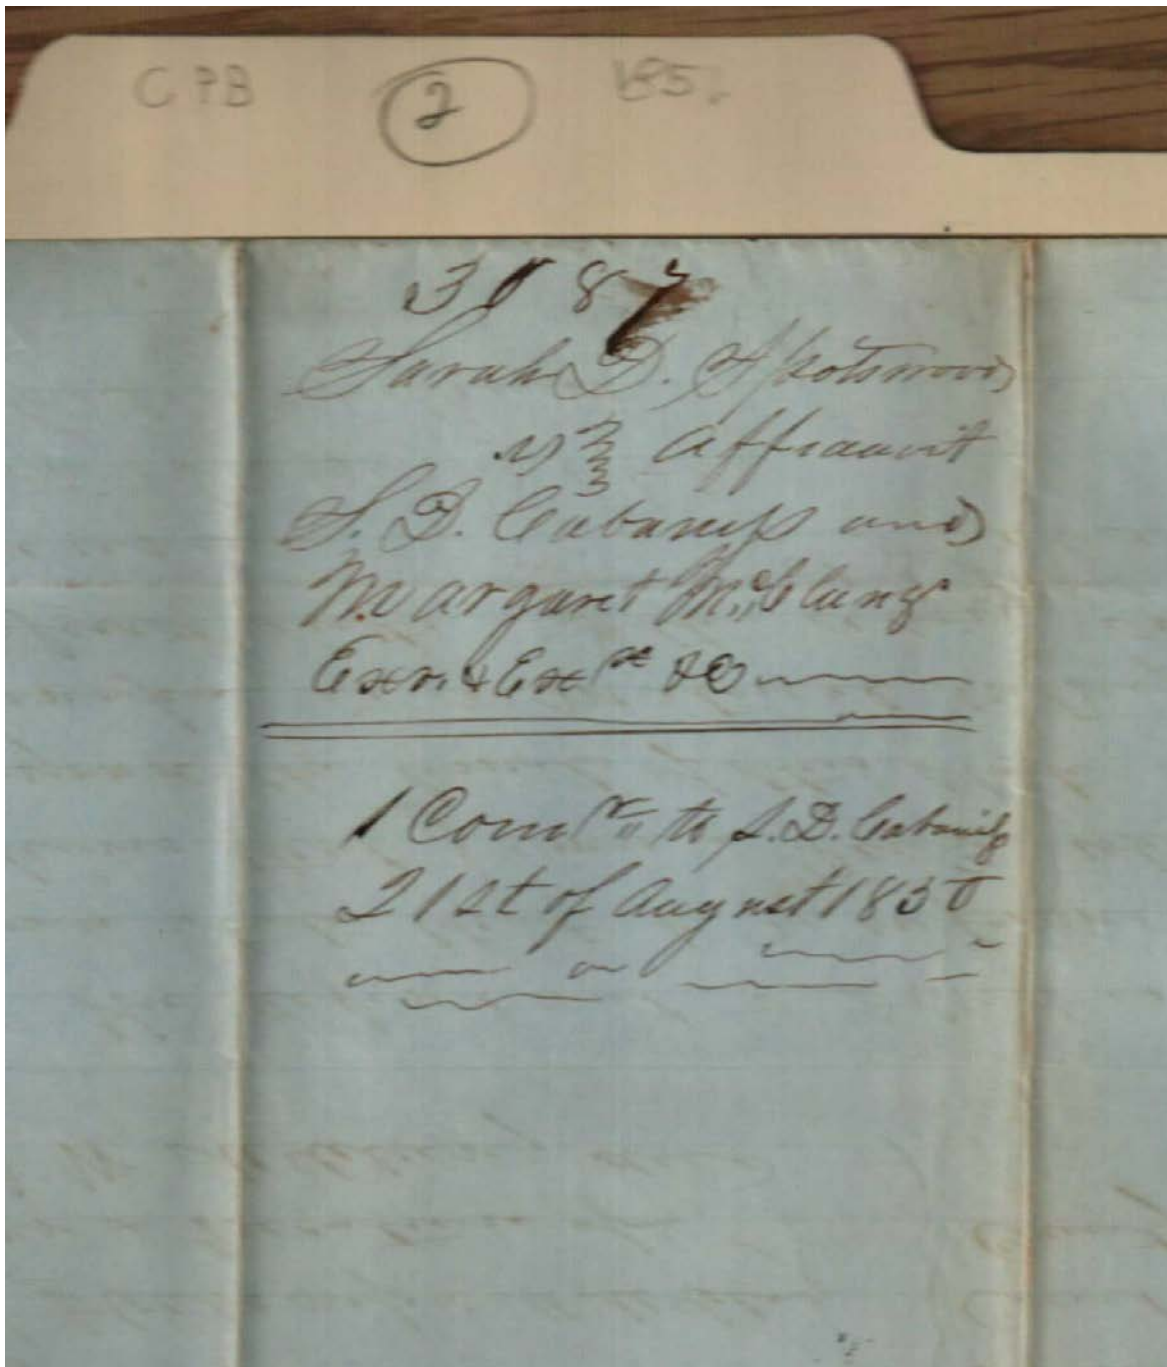 CPB 2 185
3187
Sarah D. Spotswood
vs } Affidavit
S. D. Cabaniss and
Margaret McClung
Exr. & Exx &c
1 Com to S. D. Cabaniss
21st of August 1850